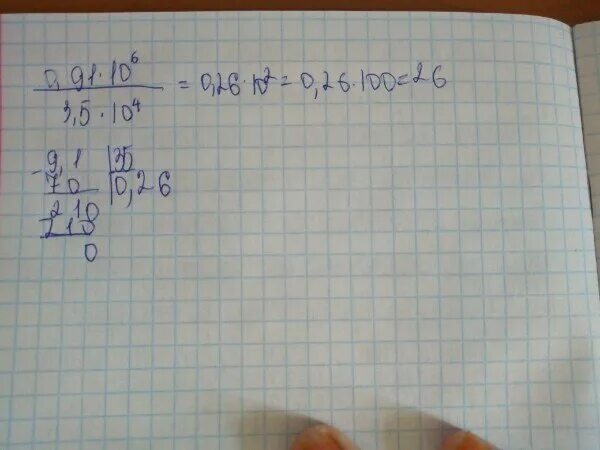 0,91·10⁶
3,5·10⁴
= 0,26·10² = 0,26·100 = 26
- 9,1 | 35
70 | 0,26
- 210
210
0